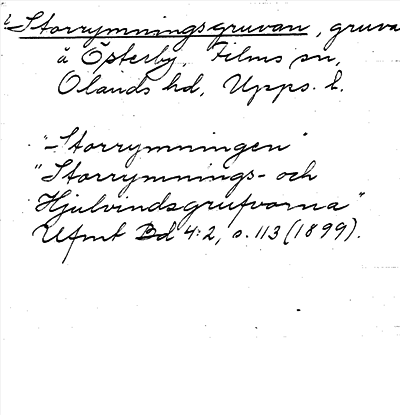 Storrymningsgruvan, gruva
å Österby, Films sn,
Olands hd, Upps. l.
"Storrymningen"
"Storrymnings- och
Hjulvindsgrufvorna"
Ufmt Bd 4:2, s. 113 (1899).